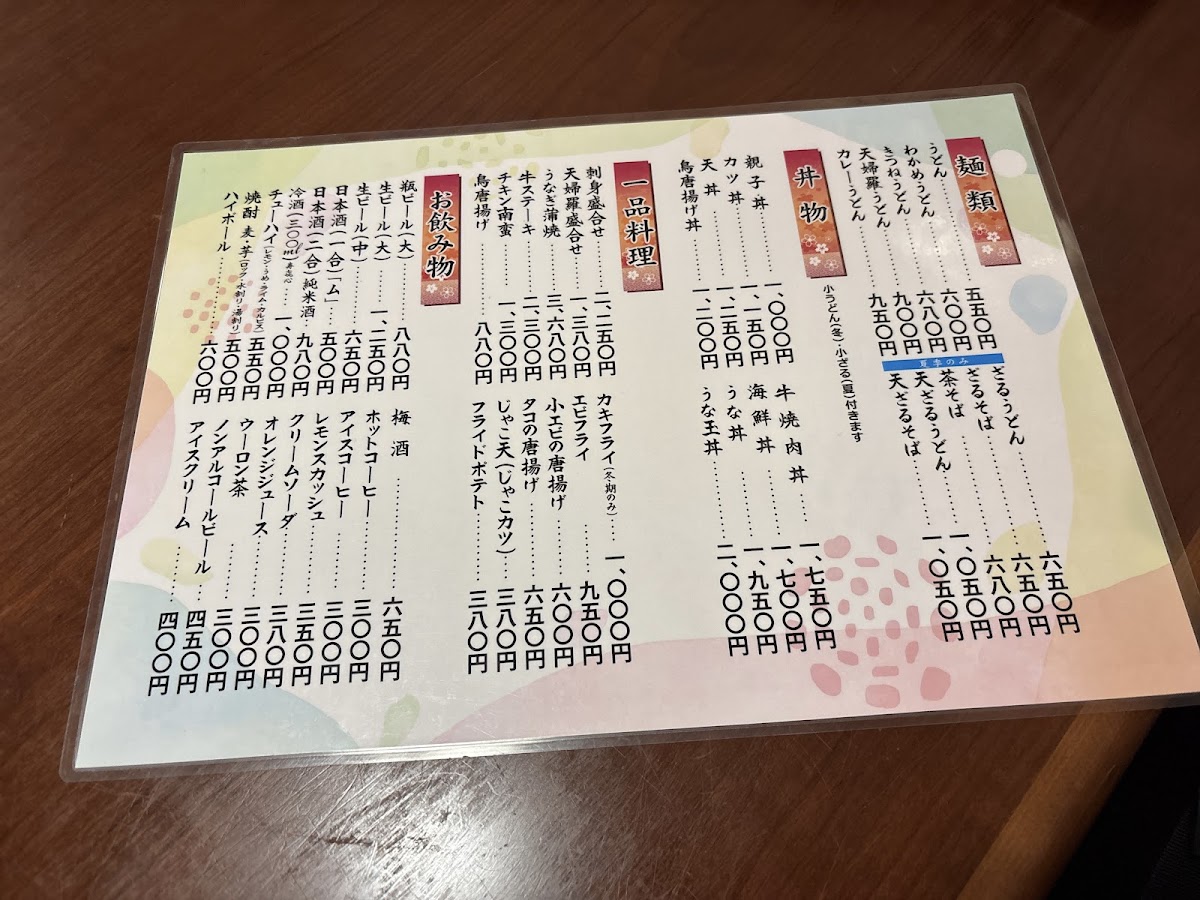 麺類
うどん……五五〇円
わかめうどん……六〇〇円
きつねうどん……六八〇円
天婦羅うどん……九〇〇円
カレーうどん……九五〇円
夏季のみ
ざるうどん……六五〇円
ざるそば……六五〇円
茶そば……六八〇円
天ざるうどん……一、〇五〇円
天ざるそば……一、〇五〇円
丼物
小うどん(冬)・小ざる(夏)付きます
親子丼……一、〇〇〇円
カツ丼……一、一五〇円
天丼……一、二五〇円
鳥唐揚げ丼……一、二〇〇円
牛焼肉丼……一、七五〇円
海鮮丼……一、七〇〇円
うな丼……一、九五〇円
うな玉丼……二、〇〇〇円
一品料理
刺身盛合せ……二、二五〇円
天婦羅盛合せ……一、三八〇円
うなぎ蒲焼……三、六八〇円
牛ステーキ……二、二〇〇円
チキン南蛮……一、三〇〇円
鳥唐揚げ……八八〇円
カキフライ(冬期のみ)……一、〇〇〇円
エビフライ……九五〇円
小エビの唐揚げ……六〇〇円
タコの唐揚げ……六五〇円
じゃこ天(じゃこカツ)……三八〇円
フライドポテト……三八〇円
お飲み物
瓶ビール(大)……八八〇円
生ビール(大)……一、二五〇円
生ビール(中)……六五〇円
日本酒(一合)「ム」……五〇〇円
日本酒(二合)純米酒……九八〇円
冷酒(三〇〇ml)……一、〇〇〇円
チューハイ(レモン・うめ・ライム・カルピス)……五五〇円
焼酎 麦・芋(ロック・水割り・湯割り)……五〇〇円
ハイボール……六〇〇円
梅酒……六五〇円
ホットコーヒー……三〇〇円
アイスコーヒー……三〇〇円
レモンスカッシュ……三五〇円
クリームソーダ……三八〇円
オレンジジュース……三〇〇円
ウーロン茶……三〇〇円
ノンアルコールビール……四五〇円
アイスクリーム……四〇〇円